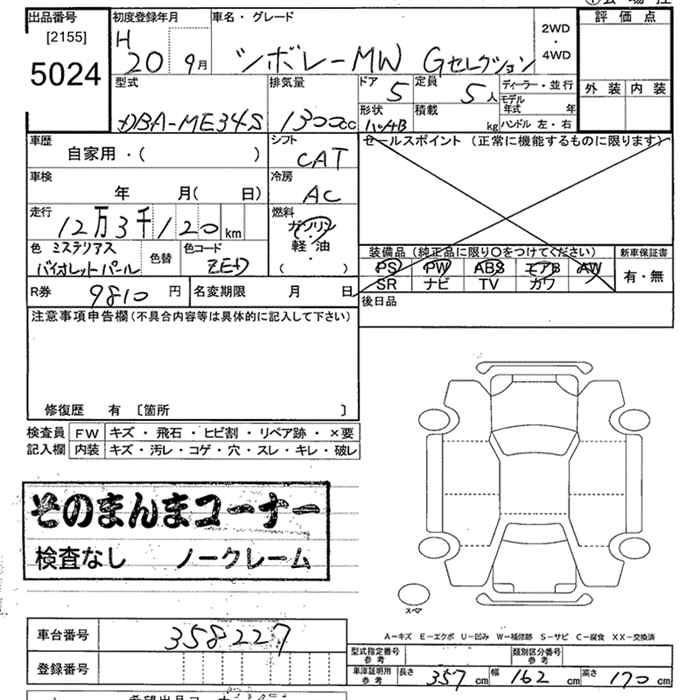 出品番号 初度登録年月 車名・グレード 評価点
[2155] H 20 9月 シボレーMW Gセレクション 2WD・4WD
5024
型式 排気量 ドア 5 定員 5人 ディーラー・並行 外装 内装
DBA-ME34S 1300cc 形状 ハッチB 積載 kg モデル年式 年
ハンドル 左・右
車歴 自家用・( ) シフト CAT セールスポイント (正常に機能するものに限ります)
車検 年 月( 日) 冷房 AC
走行 12万3千120km 燃料 ガソリン・軽油・( )
色 ミステリアスバイオレットパール 色替 色コード ZED
装備品 (純正品に限り〇をつけてください) 新車保証書
PS PW ABS エアB AW 有・無
SR ナビ TV カワ
R券 9810円 名変期限 月 日 後日品
注意事項申告欄 (不具合内容等は具体的に記入して下さい)
修復歴 有 [箇所 ]
検査員 FW キズ・飛石・ヒビ割・リペア跡・×要
記入欄 内装 キズ・汚レ・コゲ・穴・スレ・キレ・破レ
そのまんまコーナー
検査なし ノークレーム
スペア
A-キズ E-エクボ U-凹み W-補修跡 S-サビ C-腐食 XX-交換済
車台番号 358227
型式指定番号 参考 類別区分番号 参考
登録番号
車庫証明用 参考 長さ 357cm 幅 162cm 高さ 170cm